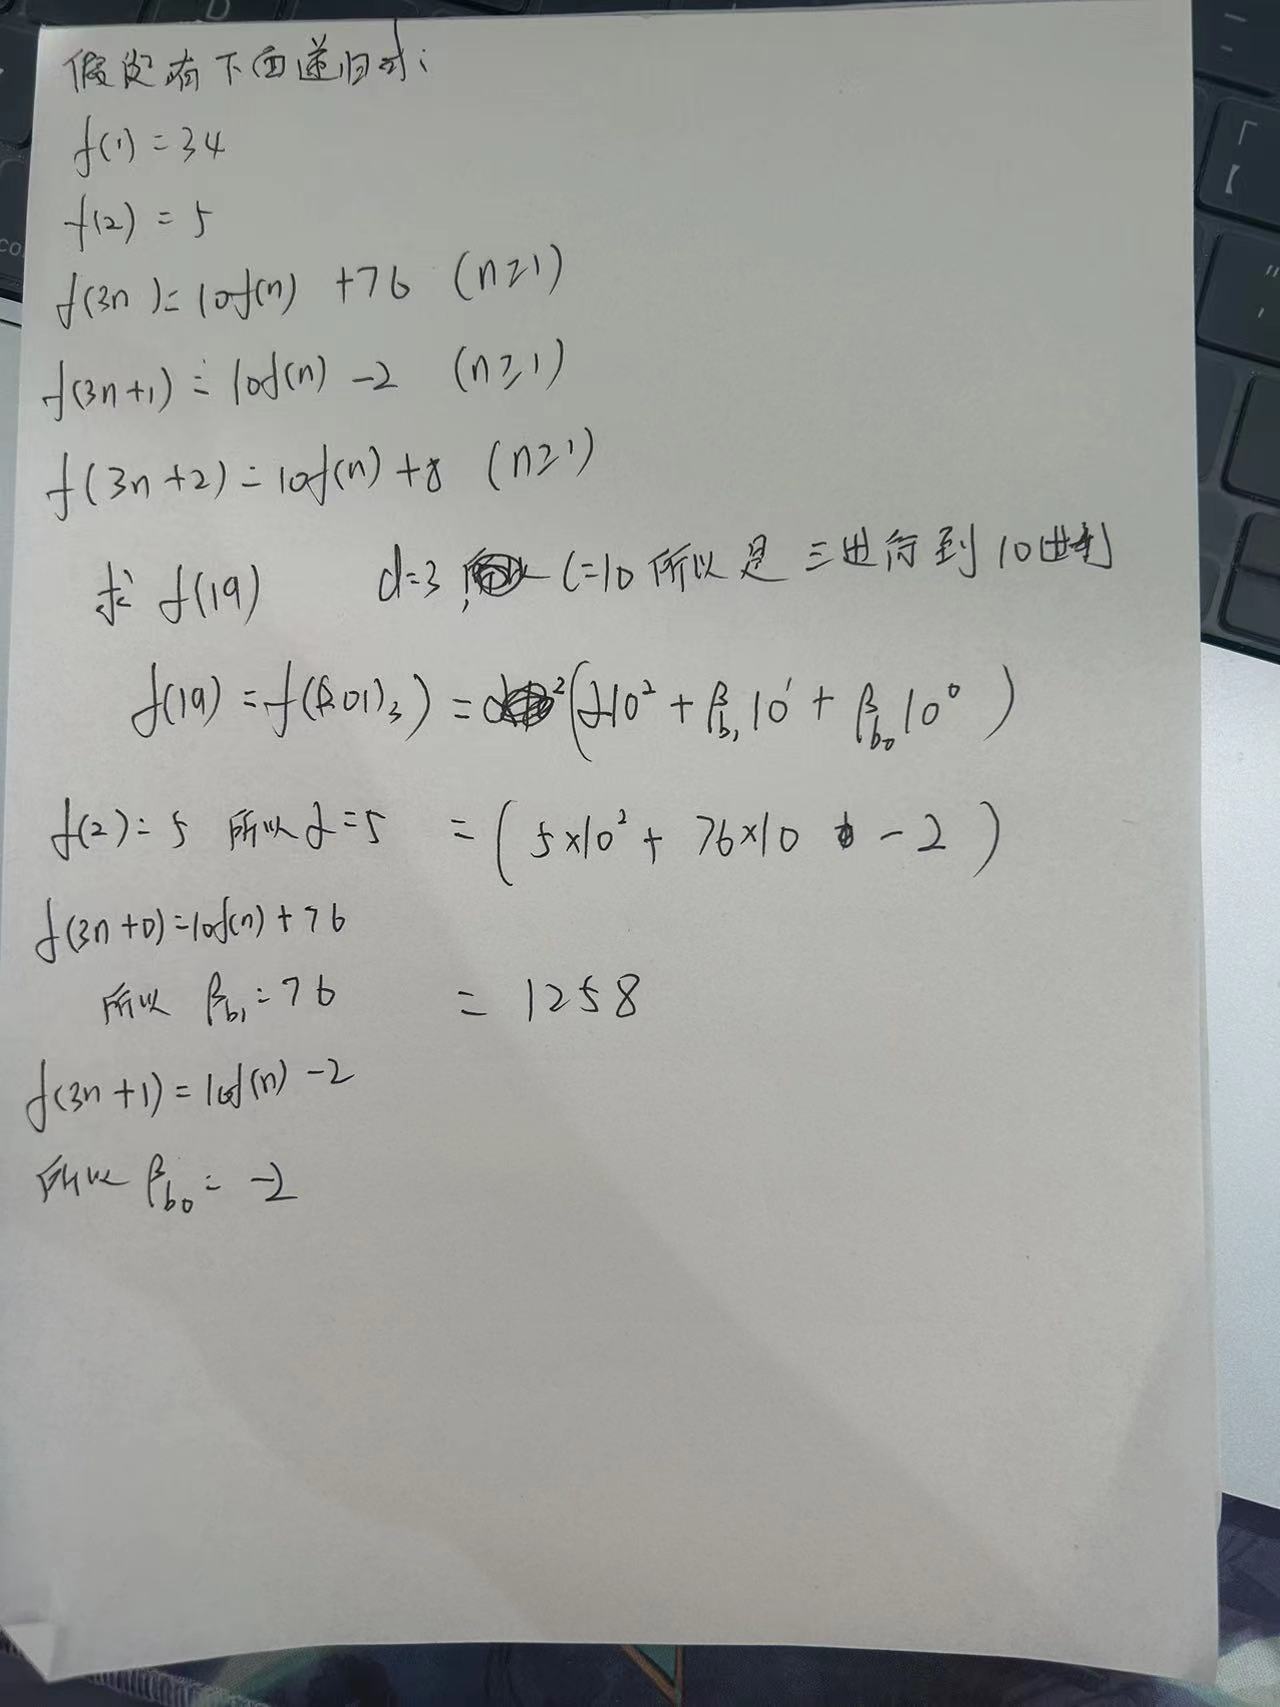 假定有下面递归式:
f(1)=34
f(2)=5
f(3n)=10f(n)+76 (n≥1)
f(3n+1)=10f(n)-2 (n≥1)
f(3n+2)=10f(n)+8 (n≥1)
求 f(19) d=3, c=10 所以是三进制到10进制
f(19)=f((201)₃)=(α10²+β_b₁10¹+β_b₀10⁰)
f(2)=5 所以α=5 =(5×10²+76×10-2)
f(3n+0)=10f(n)+76
所以 β_b₁=76 =1258
f(3n+1)=10f(n)-2
所以 β_b₀=-2